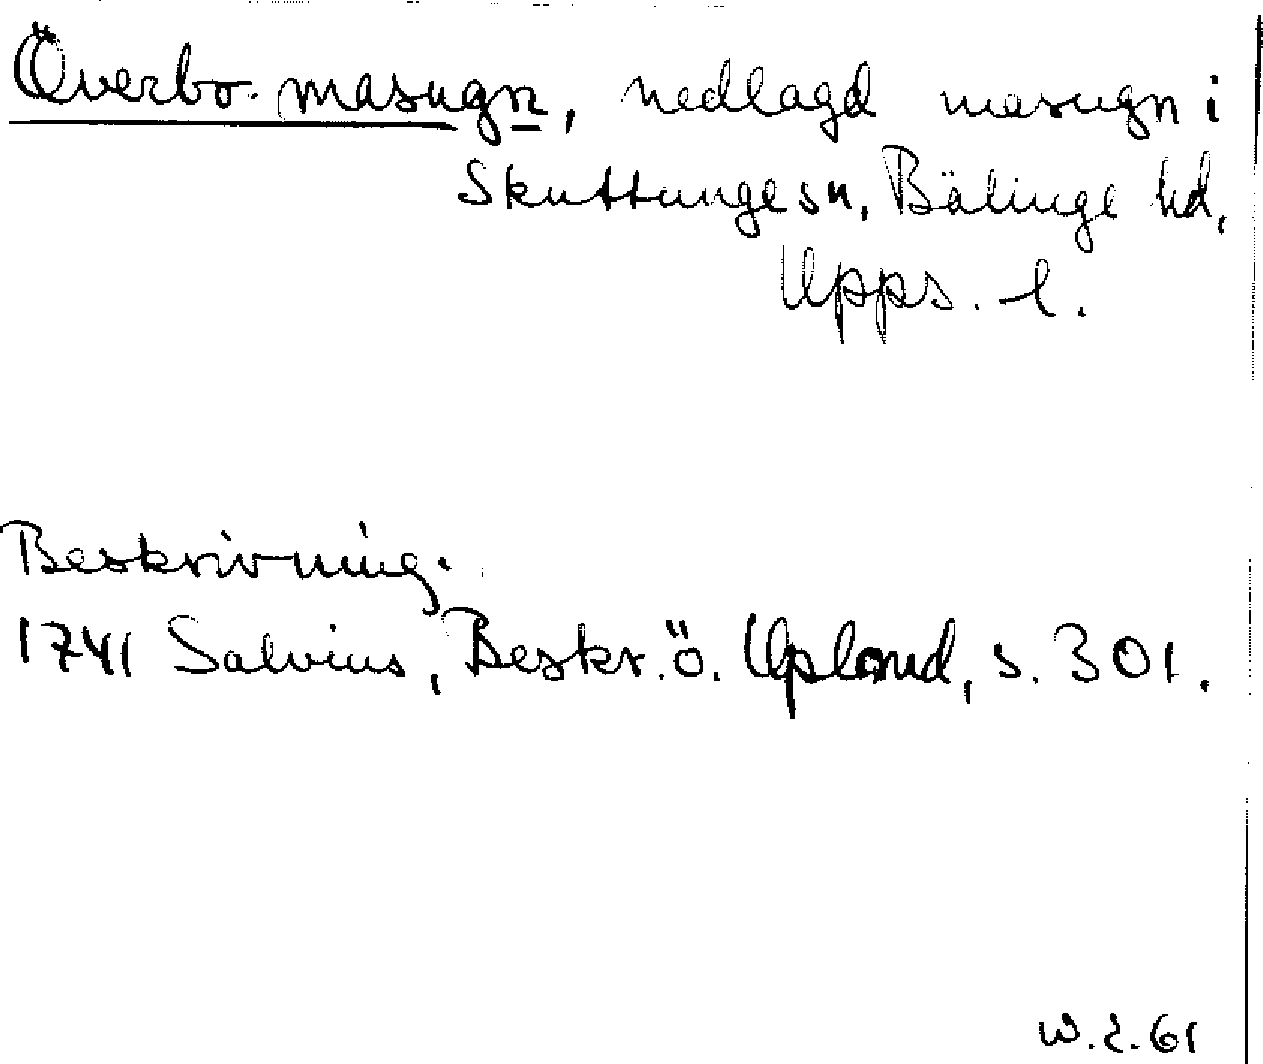 Överbo masugn, nedlagd masugn i
Skuttunge sn, Bälinge hd,
Upps. l.
Beskrivning.
1741 Salvius, Beskr. ö. Upland, s. 301.
W.2.61